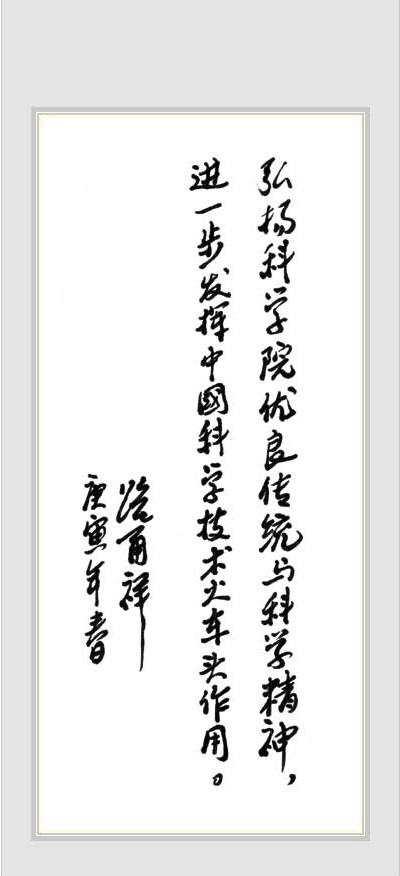 弘揚科学院优良传统与科学精神，
進一步发挥中國科学技术火车头作用。
路甬祥
庚寅年春